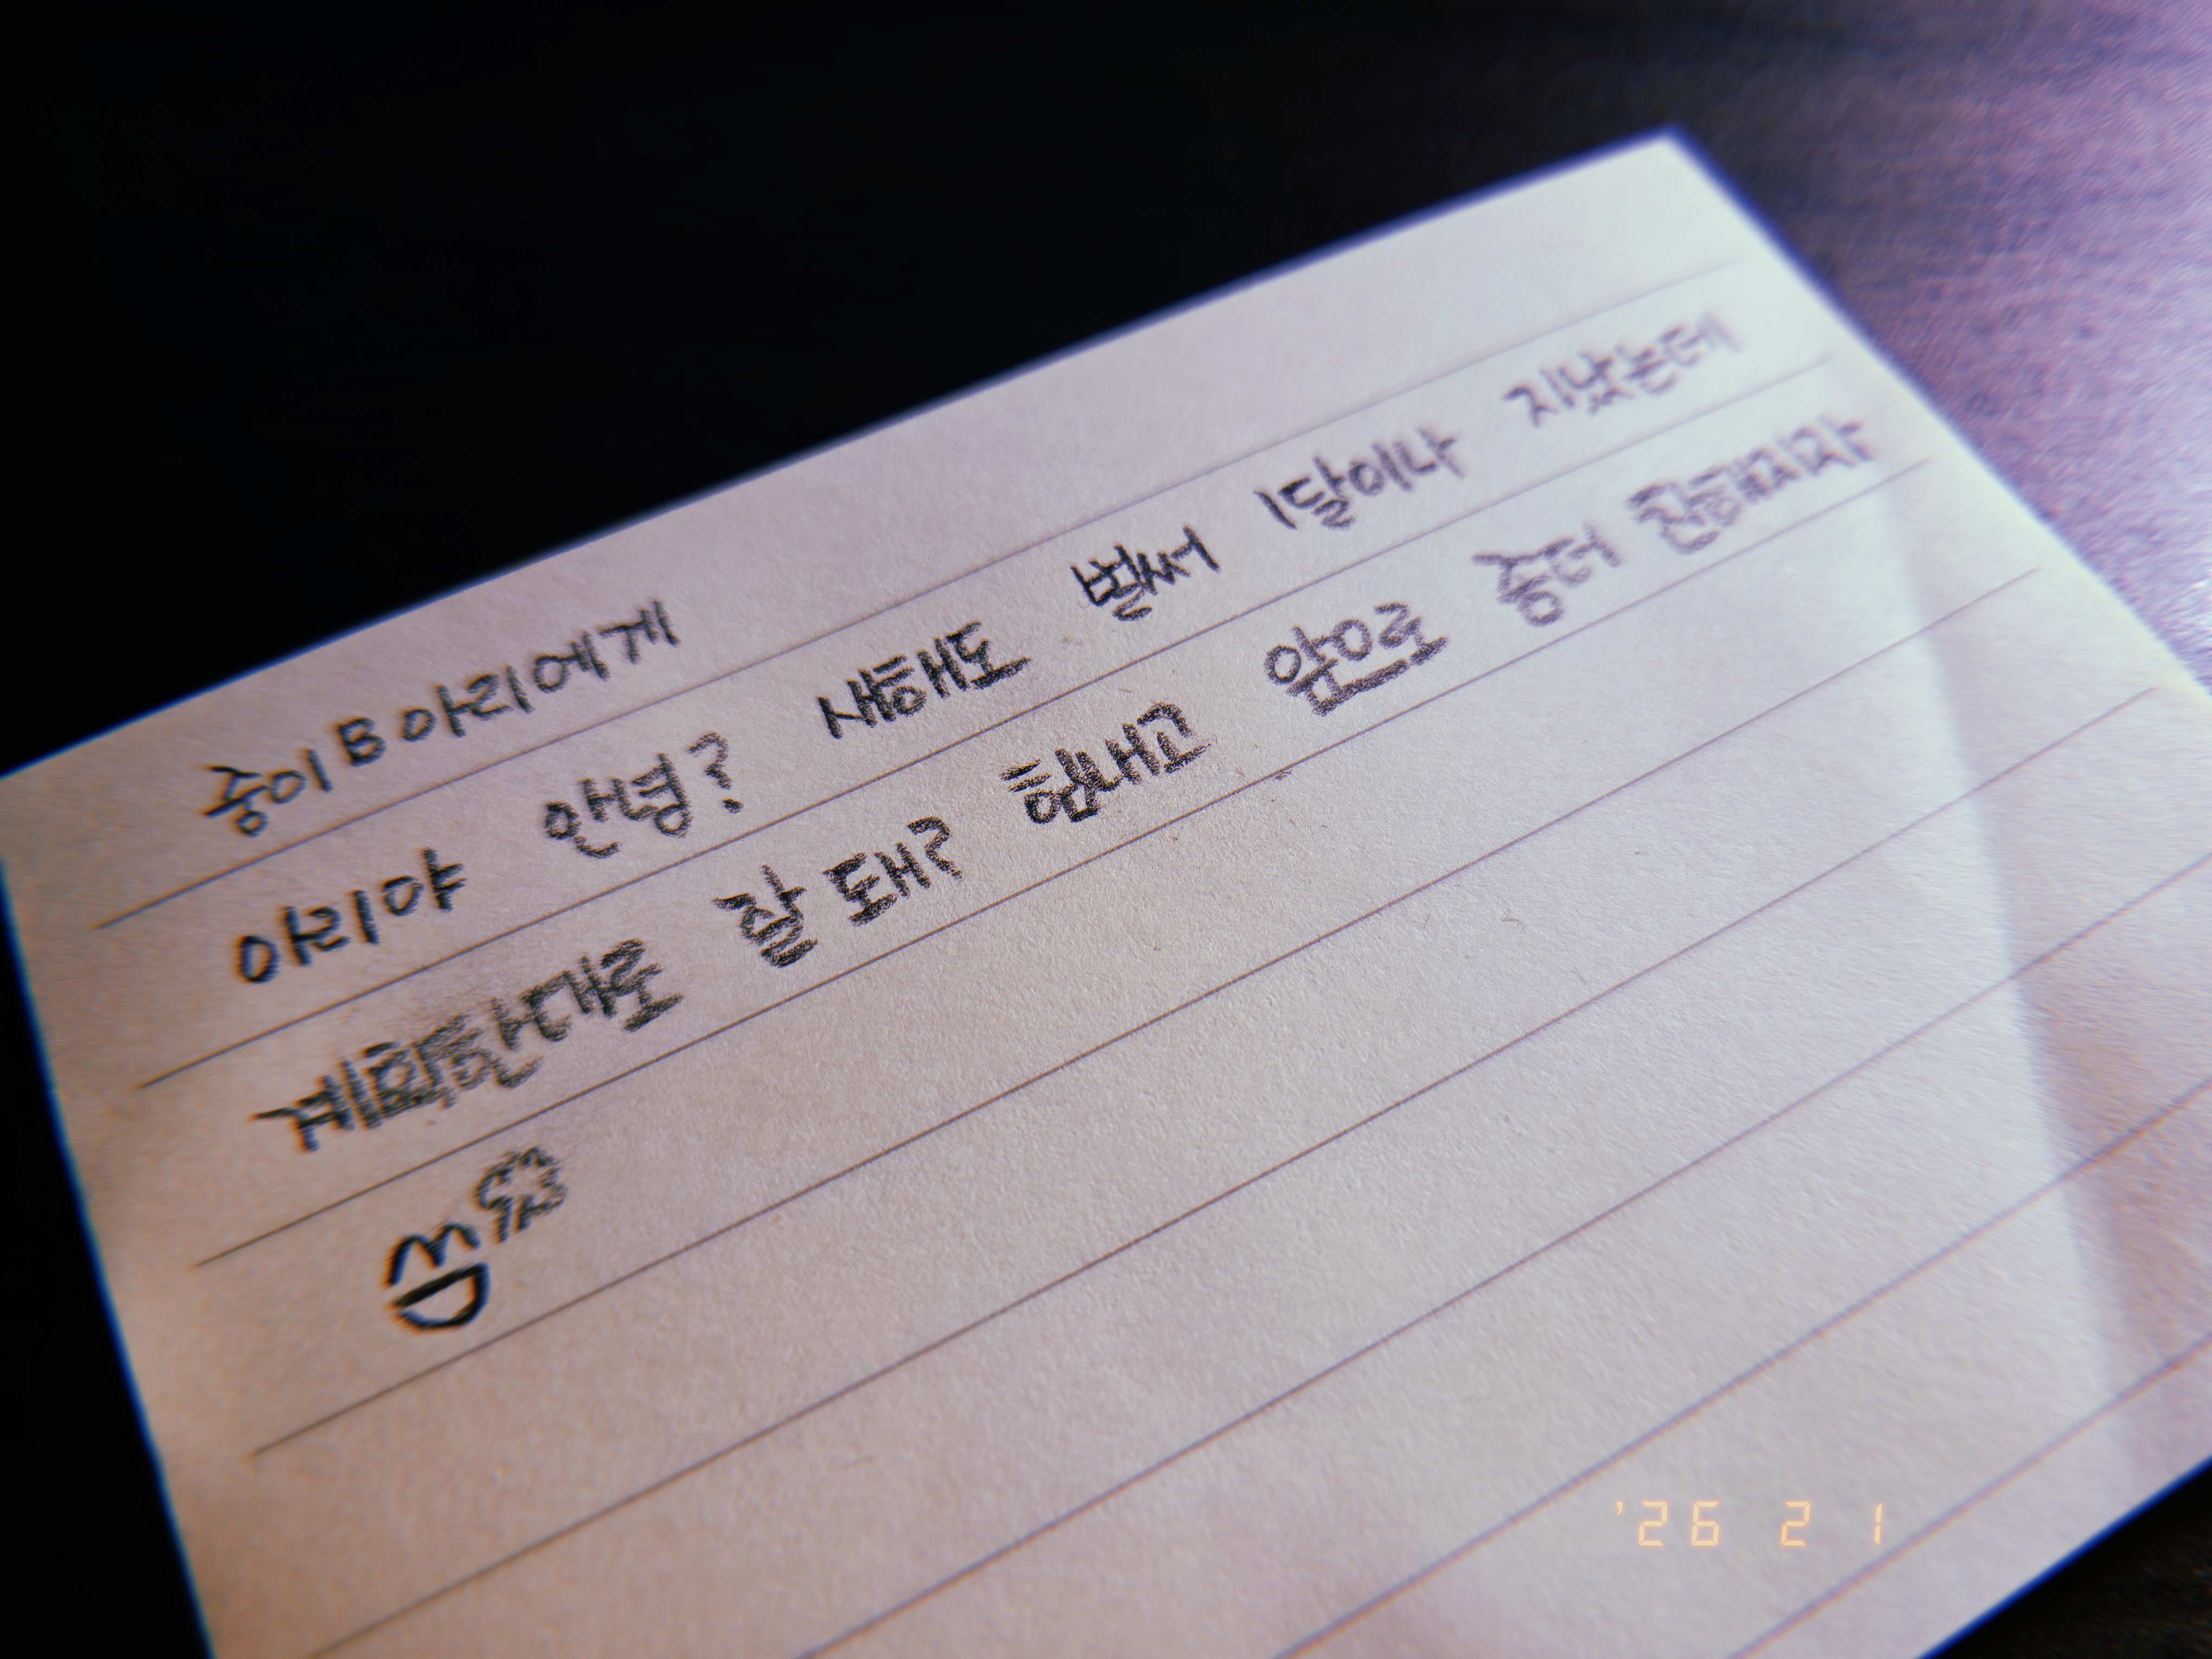 중이 B 아리에게
아리야 안녕? 새해도 벌써 1달이나 지났는데
계획한대로 잘 돼? 힘내고 앞으로 좀더 친해지자
'26 2 1